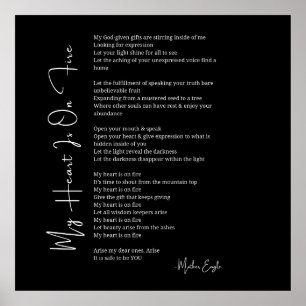 My Heart Is On Fire
My God-given gifts are stirring inside of me
Looking for expression
Let your light shine for all to see
Let the aching of your unexpressed voice find a
home
Let the fulfillment of speaking your truth bare
unbelievable fruit
Expanding from a mustered seed to a tree
Where other souls can have rest & enjoy your
abundance
Open your mouth & speak
Open your heart & give expression to what is
hidden inside of you
Let the light reveal the darkness
Let the darkness disappear within the light
My heart is on fire
It's time to shout from the mountain top
My heart is on fire
Give the gift that keeps giving
My heart is on fire
Let all wisdom keepers arise
My heart is on fire
Let beauty arise from the ashes
My heart is on fire
Arise my dear ones, Arise
It is safe to be YOU
-Mother Eagle